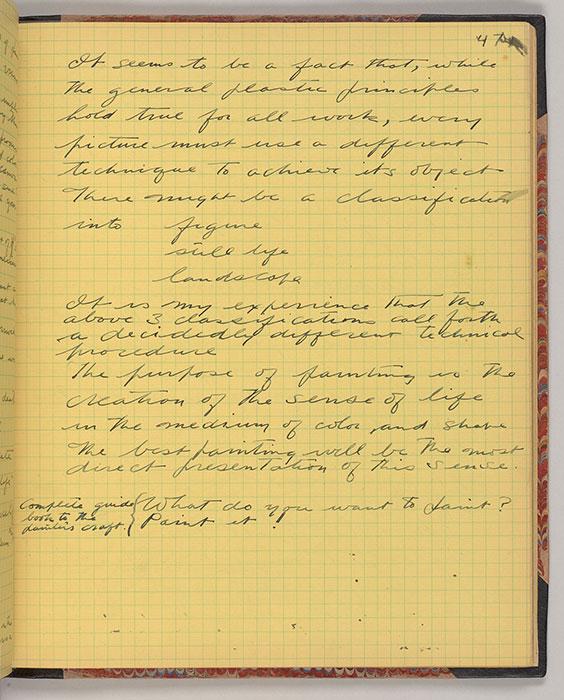 4
It seems to be a fact that, while
the general plastic principles
hold true for all work, every
picture must use a different
technique to achieve its object
There might be a classification
into figure
still life
landscape
It is my experience that the
above 3 classifications call forth
a decidedly different technical
procedure
The purpose of painting is the
creation of the sense of life
in the medium of color and shape
The best painting will be the most
direct presentation of this sense.
Complete guide
book to the
painters craft.
What do you want to paint?
Paint it!